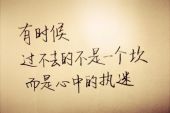 有时候
过不去的不是一个坎
而是心中的执迷